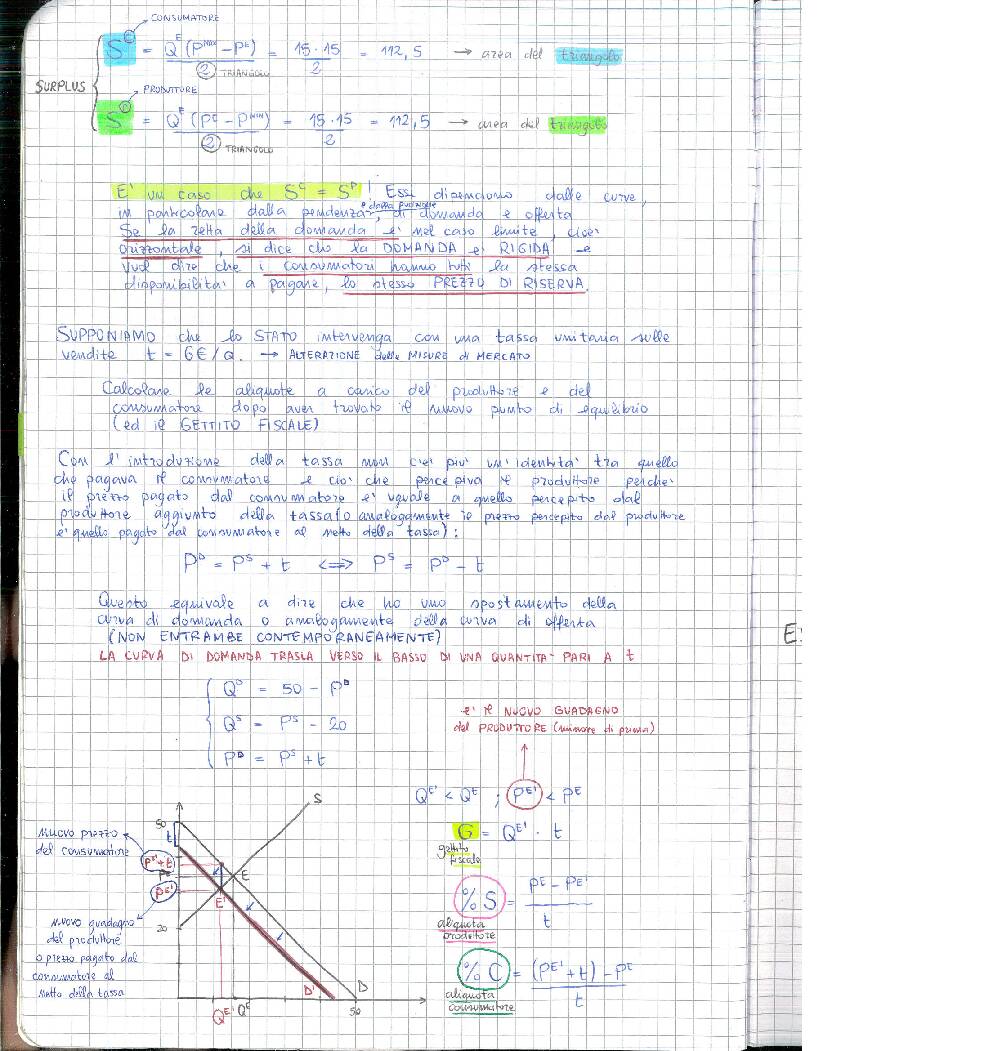 CONSUMATORE
S^C = Q^E (P^MAX - P^E) / 2 = 15·15 / 2 = 112,5 → area del triangolo
TRIANGOLO
SURPLUS
PRODUTTORE
S^P = Q^E (P^E - P^MIN) / 2 = 15·15 / 2 = 112,5 → area del triangolo
TRIANGOLO
E' un caso che S^C = S^P ! Essi dipendono dalle curve,
in particolare dalla pendenza, di domanda e offerta
Se la retta della domanda è nel caso limite, cioè
orizzontale, si dice che la DOMANDA è RIGIDA e
vuol dire che i consumatori hanno tutti la stessa
disponibilità a pagare, lo stesso PREZZO DI RISERVA.
SUPPONIAMO che lo STATO intervenga con una tassa unitaria sulle
vendite t = 6€/Q. → ALTERAZIONE delle MISURE di MERCATO
Calcolare le aliquote a carico del produttore e del
consumatore dopo aver trovato il nuovo punto di equilibrio
(ed il GETTITO FISCALE)
Con l'introduzione della tassa non c'è più un'identità tra quello
che pagava il consumatore e ciò che percepiva il produttore perché
il prezzo pagato dal consumatore è uguale a quello percepito dal
produttore aggiunto della tassa (o analogamente il prezzo percepito dal produttore
è quello pagato dal consumatore al netto della tassa):
P^D = P^S + t <=> P^S = P^D - t
Questo equivale a dire che ho uno spostamento della
curva di domanda o analogamente della curva di offerta
(NON ENTRAMBE CONTEMPORANEAMENTE)
LA CURVA DI DOMANDA TRASLA VERSO IL BASSO DI UNA QUANTITA' PARI A t
Q^D = 50 - P^D
Q^S = P^S - 20
P^D = P^S + t
è il NUOVO GUADAGNO
del PRODUTTORE (minore di prima)
Q^E' < Q^E ; P^E' < P^E
G = Q^E' · t
gettito
fiscale
%S = P^E - P^E' / t
aliquota
produttore
%C = (P^E' + t) - P^E / t
aliquota
consumatore
NUOVO prezzo
del consumatore
NUOVO guadagno
del produttore
o prezzo pagato dal
consumatore al
netto della tassa
50
t
P^E'+t
P^E
P^E'
20
S
E
E'
D'
D
Q^E' Q^E
50
E